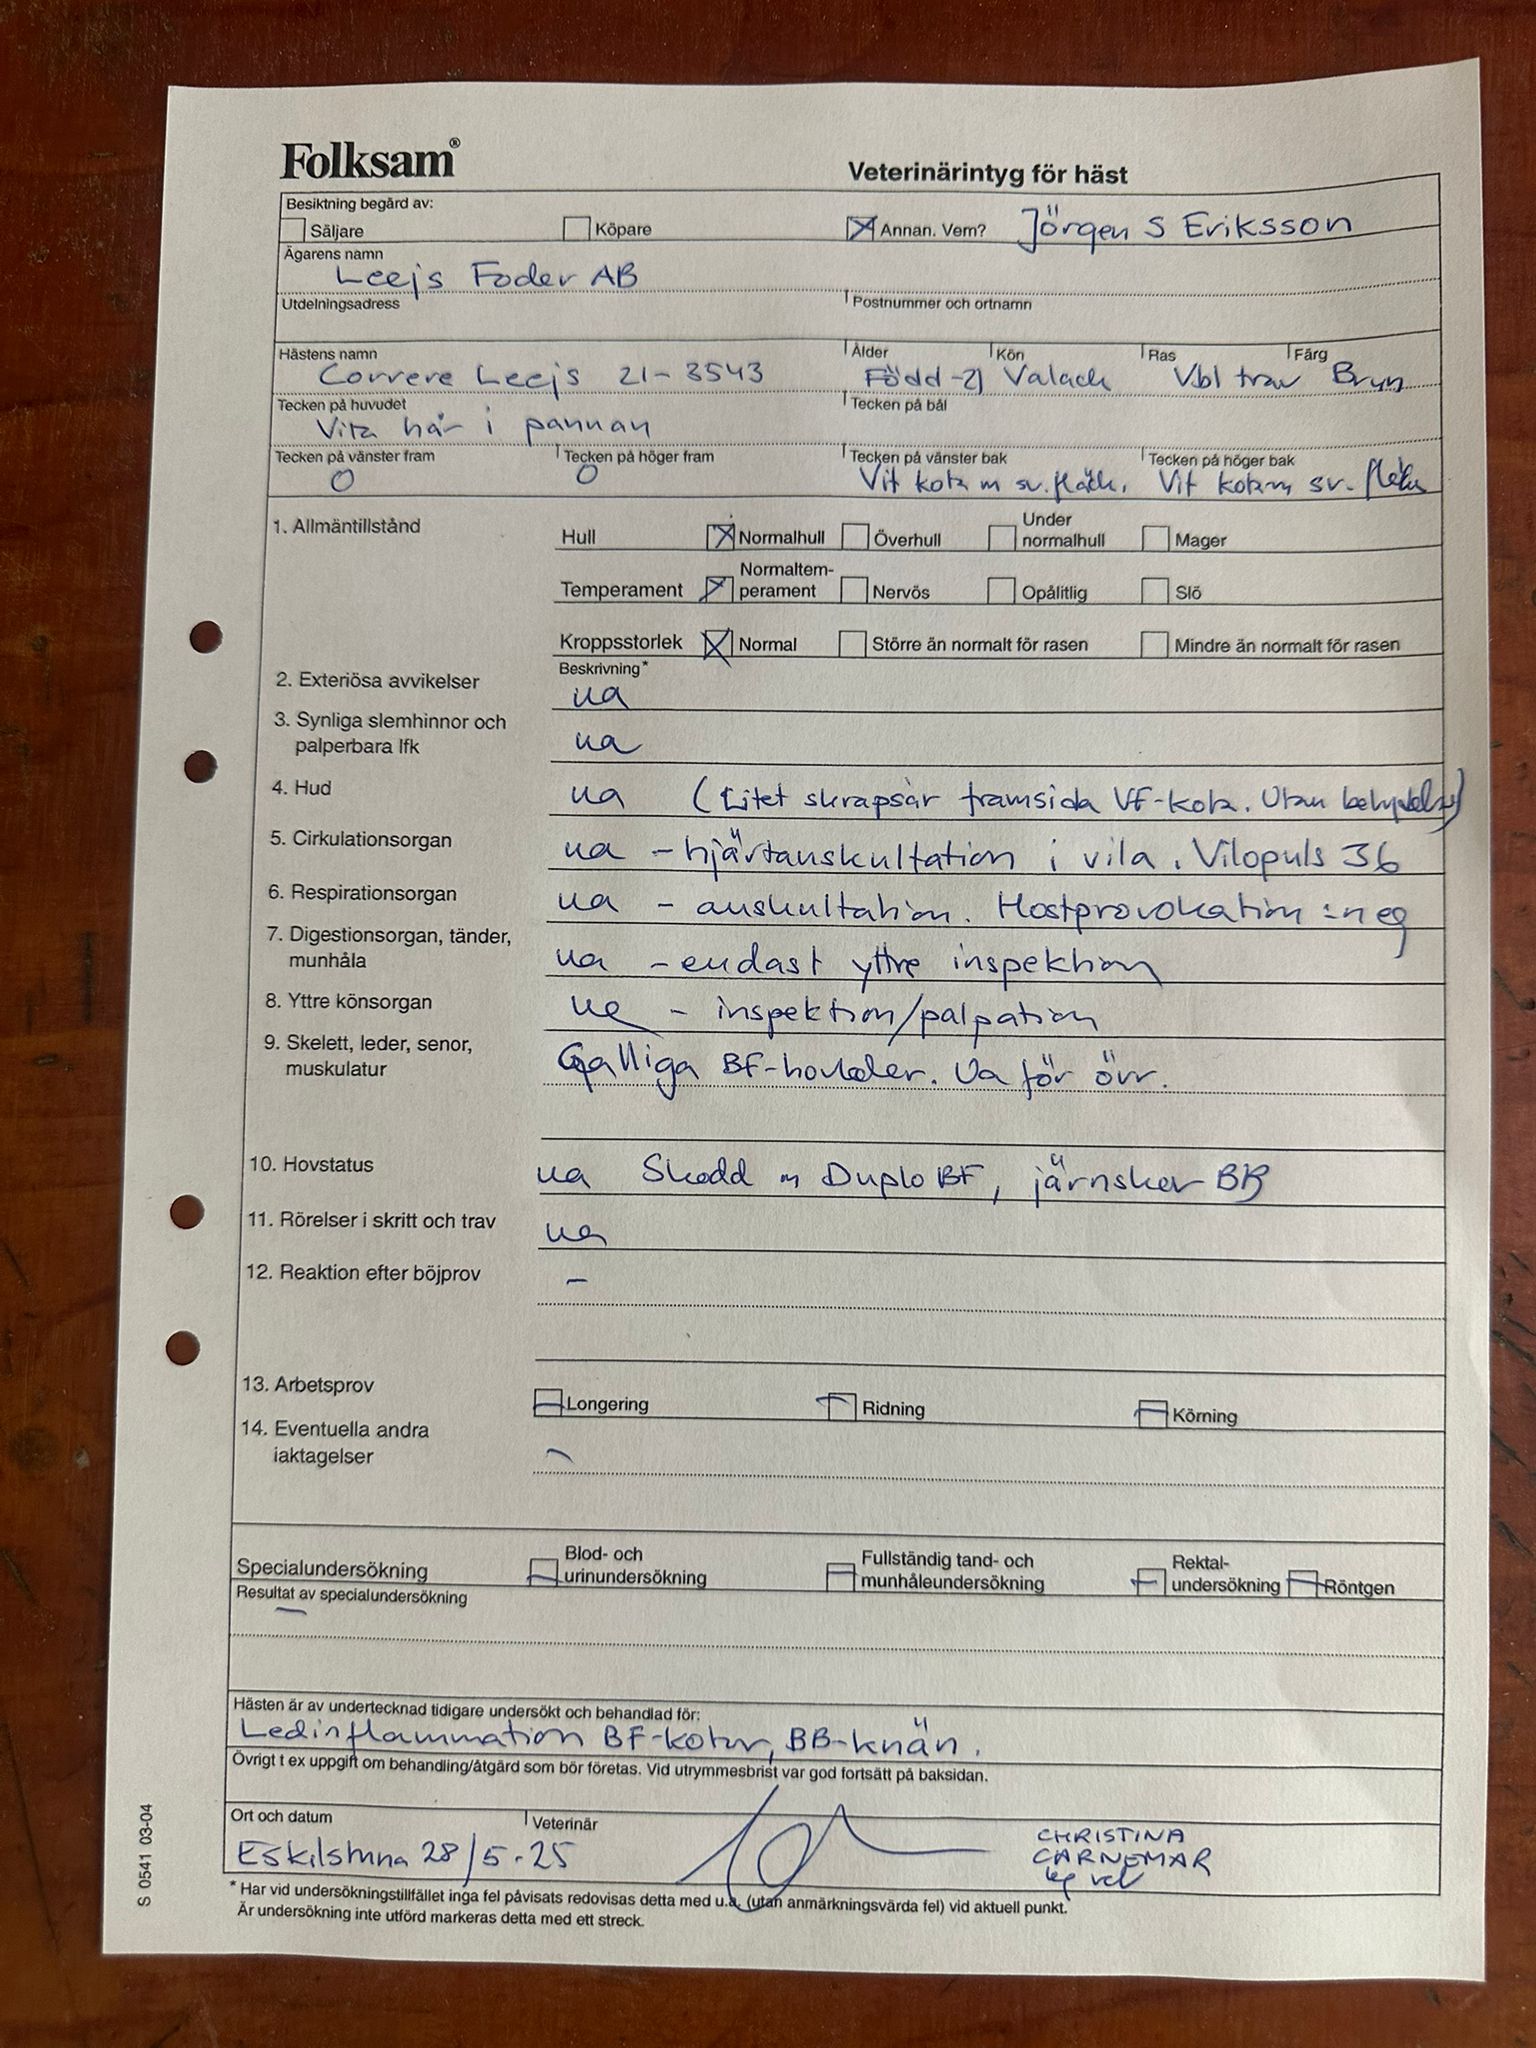 Folksam®
Veterinärintyg för häst
Besiktning begärd av:
Säljare Köpare Annan. Vem? Jörgen S Eriksson
Ägarens namn
Leejs Foder AB
Utdelningsadress Postnummer och ortnamn
Hästens namn Ålder Kön Ras Färg
Correre Leejs 21-3543 Född -21 Valack Vbl trav Brun
Tecken på huvudet Tecken på bål
Vita hår i pannan
Tecken på vänster fram Tecken på höger fram Tecken på vänster bak Tecken på höger bak
0 0 Vit kota m sv. fläck. Vit kota m sv. fläck
1. Allmäntillstånd
Hull Normalhull Överhull Under normalhull Mager
Temperament Normaltem-perament Nervös Opålitlig Slö
Kroppsstorlek Normal Större än normalt för rasen Mindre än normalt för rasen
Beskrivning*
2. Exteriösa avvikelser ua
3. Synliga slemhinnor och
palperbara lfk ua
4. Hud ua (Litet skrapsår framsida VF-kota. Utan betydelse)
5. Cirkulationsorgan ua - hjärtauskultation i vila. Vilopuls 36
6. Respirationsorgan ua - auskultation. Hostprovokation = neg
7. Digestionsorgan, tänder,
munhåla ua - endast yttre inspektion
8. Yttre könsorgan ua - inspektion/palpation
9. Skelett, leder, senor,
muskulatur Galliga BF-hovleder. Ua för övr.
10. Hovstatus ua Skodd m Duplo BF, järnskor BB
11. Rörelser i skritt och trav ua
12. Reaktion efter böjprov –
13. Arbetsprov Longering Ridning Körning
14. Eventuella andra
iaktagelser –
Specialundersökning Blod- och urinundersökning Fullständig tand- och munhåleundersökning Rektal-undersökning Röntgen
Resultat av specialundersökning
–
Hästen är av undertecknad tidigare undersökt och behandlad för:
Ledinflammation BF-kotor, BB-knän.
Övrigt t ex uppgift om behandling/åtgärd som bör företas. Vid utrymmesbrist var god fortsätt på baksidan.
Ort och datum Veterinär
Eskilstuna 28/5-25
CHRISTINA
CARNEMAR
leg vet
* Har vid undersökningstillfället inga fel påvisats redovisas detta med u.a. (utan anmärkningsvärda fel) vid aktuell punkt.
Är undersökning inte utförd markeras detta med ett streck.
S 0541 03-04